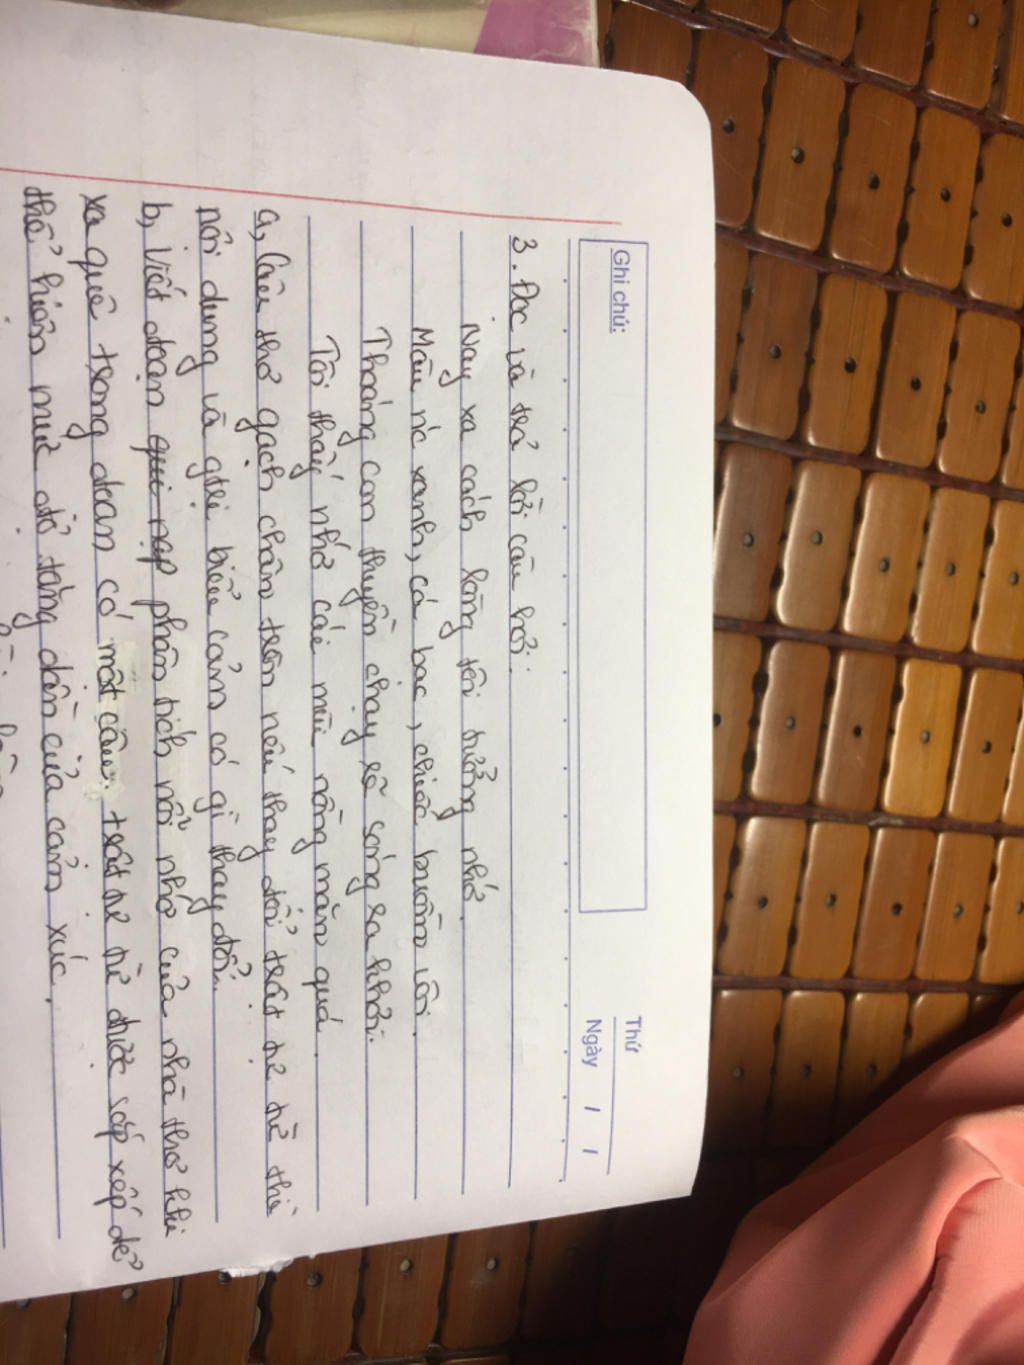 Ghi chú:
Thứ
Ngày / /
3. Đọc và trả lời câu hỏi:
Nay xa cách lòng tôi tưởng nhớ.
Mầu nc xanh, cá bạc, chiếc buồm vôi.
Thoáng con thuyền chạy rẽ sóng ra khơi.
Tôi thấy nhớ cái mùi nồng mặn quá.
a, Câu thơ gạch chân trên nếu thay đổi trật tự từ thì
nội dung và giá trị biểu cảm có gì thay đổi.
b, Viết đoạn qui nạp phân tích nỗi nhớ của nhà thơ khi
xa quê trong đoạn có một câu: trật tự từ được sắp xếp để
thể hiện mức độ tăng dần của cảm xúc.